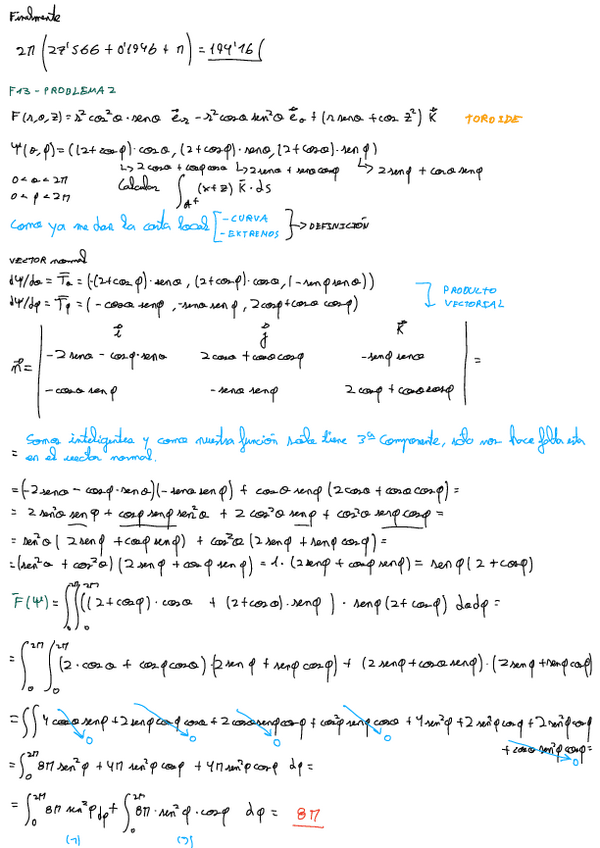 Finalmente
2π (27'566 + 0'1946 + π) = 194'16 (
F13 - PROBLEMA 2
F(r,θ,z) = r² cos²θ · senθ e⃗r - r² cosθ sen²θ e⃗θ + (r senθ + cos z²) K⃗ TOROIDE
Ψ(θ,φ) = ((2+cosφ) · cosθ, (2+cosφ) · senθ, (2+cosθ) · senφ)
↳ 2cosθ + cosφ cosθ ↳ 2senθ + senθ cosφ ↳ 2senφ + cosθ senφ
0 < θ < 2π Calcular ∫A+ (x+z) K⃗ · ds
0 < φ < 2π
Como ya me dan la carta local [ - CURVA - EXTREMOS } → DEFINICIÓN
VECTOR normal
dΨ/dθ = T̄θ = (-(2+cosφ) · senθ, (2+cosφ) · cosθ, (-senφ senθ))
dΨ/dφ = T̄φ = (-cosθ senφ, -senθ senφ, 2cosφ + cosθ cosφ)
PRODUCTO VECTORIAL
i⃗ j⃗ K⃗
n⃗ = | -2senθ - cosφ·senθ 2cosθ + cosθ cosφ -senφ senθ | =
-cosθ senφ -senθ senφ 2cosφ + cosθ cosφ
= Somos inteligentes y como nuestra función solo tiene 3ª Componente, solo nos hace falta esta
en el vector normal.
= (-2senθ - cosφ·senθ)(-senθ senφ) + cosθ senφ (2cosθ + cosθ cosφ) =
= 2sen²θ senφ + cosφ senφ sen²θ + 2cos²θ senφ + cos²θ senφ cosφ =
= sen²θ (2senφ + cosφ senφ) + cos²θ (2senφ + senφ cosφ) =
= (sen²θ + cos²θ) (2senφ + cosφ senφ) = 1 · (2senφ + cosφ senφ) = senφ (2+cosφ)
F̄(Ψ) = ∫₀^2π ∫₀^2π ((2+cosφ) · cosθ + (2+cosθ) · senφ) · senφ (2+cosφ) dθdφ =
= ∫₀^2π ∫₀^2π (2·cosθ + cosφ cosθ) · (2senφ + senφ cosφ) + (2senφ + cosθ senφ) · (2senφ + senφ cosφ)
= ∫∫ 4cosθ senφ + 2senφ cosφ cosθ + 2cosθ senφ cosφ + cos²φ senφ cosθ + 4sen²φ + 2sen²φ cosφ + 2sen²φ cosθ
0 0 0 0 + cosθ sen²φ cosφ =
0
= ∫₀^2π 8π sen²φ + 4π sen²φ cosφ + 4π sen²φ cosφ dφ =
= ∫₀^2π 8π sen²φ dφ + ∫₀^2π 8π · sen²φ · cosφ dφ = 8π